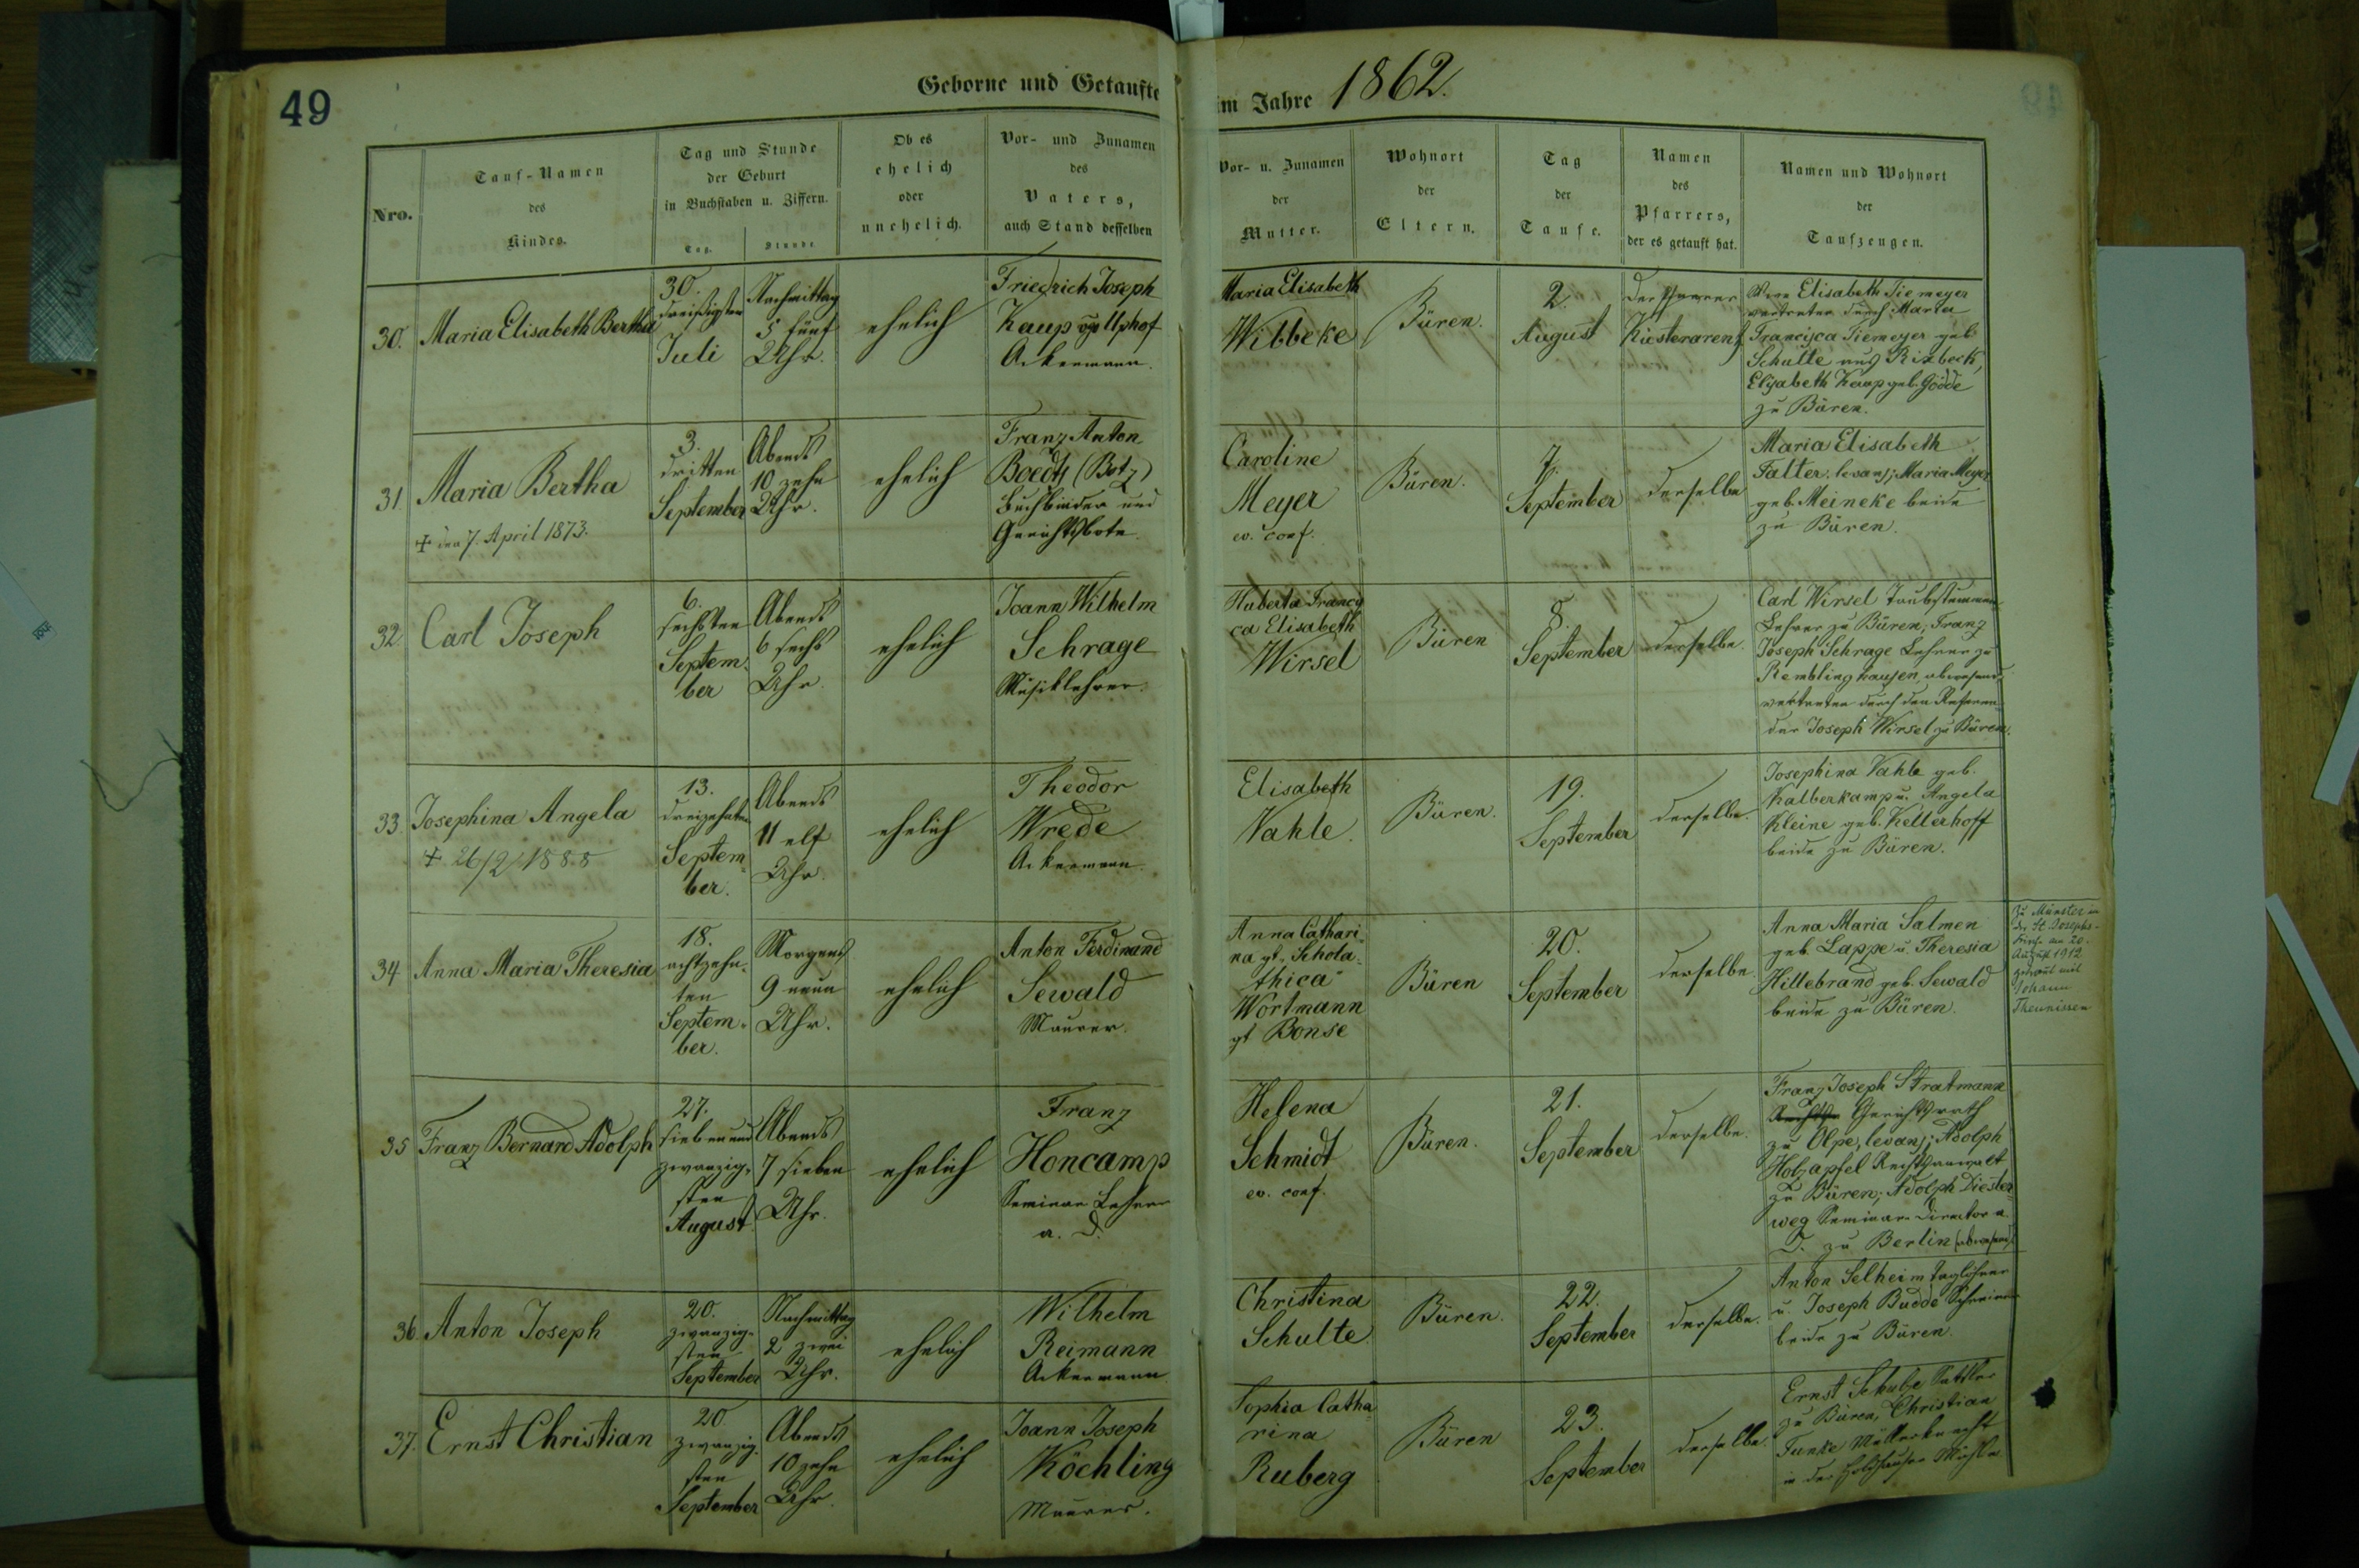 49
Geborne und Getaufte
im Jahre 1862.
Nro.
Tauf-Namen
des
Kindes.
Tag und Stunde
der Geburt
in Buchstaben u. Ziffern.
Tag.
Stunde
Ob es
ehelich
oder
unehelich.
Vor- und Zunamen
des
Vaters,
auch Stand desselben
Vor- u. Zunamen
der
Mutter.
Wohnort
der
Eltern.
Tag
der
Taufe.
Namen
des
Pfarrers,
der es getauft hat.
Namen und Wohnort
der
Taufzeugen.
30.
Maria Elisabeth Bertha
30.
dreißigsten
Juli
Nachmittag
5 fünf
Uhr.
ehelich
Friedrich Joseph
Kaup Uphof
Ackermann.
Maria Elisabeth
Wibbeke
Büren.
2.
August
Der Pfarrer
Küsterarentz
Elisabeth Tiemeyer
vertreten durch Maria
Francisca Tiemeyer geb.
Schulte aus Rixbeck,
Elisabeth Kaup geb. Gödde
zu Büren.
31.
Maria Bertha
+ den 7. April 1873.
3.
dritten
September
Abends
10 zehn
Uhr.
ehelich
Franz Anton
Boedts (Botz)
Buchbinder und
Gerichtsbote
Caroline
Meyer
ev. conf.
Büren.
7.
September
derselbe
Maria Elisabeth
Falter (evang); Maria Meyer
geb. Meineke beide
zu Büren.
32.
Carl Joseph
6.
sechsten
Septem-
ber
Abends
6 sechs
Uhr.
ehelich
Joann Wilhelm
Schrage
Musiklehrer.
Huberta Francis
ca Elisabeth
Wirsel
Büren
8.
September
derselbe.
Carl Wirsel Taubstummen
Lehrer zu Büren; Franz
Joseph Schrage Lehrer zu
Remblinghausen, abwesend,
vertreten durch den Referen-
dar Joseph Wirsel zu Büren.
33.
Josephina Angela
+ 26/2 1888
13.
dreizehnten
Septem-
ber.
Abends
11 elf
Uhr.
ehelich
Theodor
Wrede
Ackermann.
Elisabeth
Vahle.
Büren.
19.
September
derselbe.
Josephina Vahle geb.
Kalberkamp u. Angela
Kleine geb. Kellerhoff
beide zu Büren.
34
Anna Maria Theresia
18.
achtzehn-
ten
Septem-
ber.
Morgens
9 neun
Uhr.
ehelich
Anton Ferdinand
Sewald
Maurer.
Anna Cathari-
na gt. Schola-
thica
Wortmann
gt Bonse
Büren
20.
September
derselbe.
Anna Maria Salmen
geb. Lappe u. Theresia
Hillebrand geb. Sewald
beide zu Büren.
Zu Münster in
der St. Josephs-
kirche am 20.
August 1912
getraut mit
Johann
Theunissen
35
Franz Bernard Adolph
27.
sieben und
zwanzig-
sten
August
Abends
7 sieben
Uhr.
ehelich
Franz
Honcamp
Seminar Lehrer
a. D.
Helena
Schmidt
ev. conf.
Büren.
21.
September
derselbe.
Franz Joseph Stratmann
Gerichtsrath
zu Olpe, (evang); Adolph
Holzapfel Rechtsanwalt
zu Büren; Adolph Diester
weg Seminar-Director a.
D. zu Berlin (abwesend).
36
Anton Joseph
20.
zwanzig-
sten
September
Nachmittag
2 zwei
Uhr.
ehelich
Wilhelm
Reimann
Ackermann.
Christina
Schulte
Büren.
22.
September
derselbe.
Anton Selheim Taglöhner
u. Joseph Budde Schreiner
beide zu Büren.
37.
Ernst Christian
20.
zwanzig-
sten
September
Abends
10 zehn
Uhr.
ehelich
Joann Joseph
Köchling
Maurer.
Sophia Catha
rina
Ruberg
Büren
23.
September
derselbe.
Ernst Schulze Sattler
zu Büren, Christian
Funke Müllerknecht
in der Holthauser Mühle